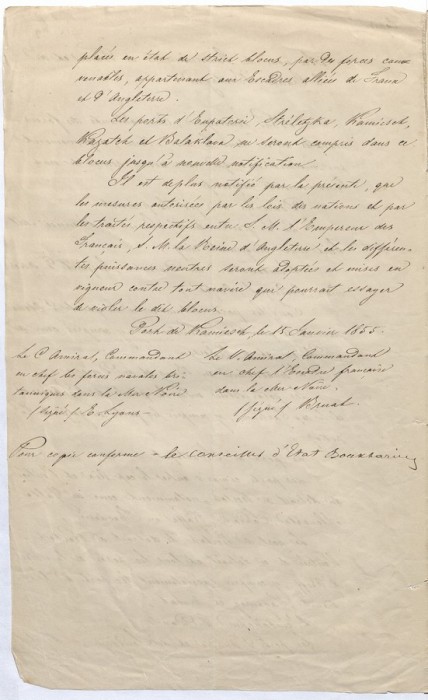 placés en état de strict blocus, par des forces con-
venables, appartenant aux Escadres alliées de France
et d'Angleterre.
Les ports d'Eupatorie, Stréletzka, Kamiesch,
Kazatch et Balaklava ne seront compris dans ce
blocus jusqu'à nouvelle notification.
Il est de plus notifié par la présente, que
les mesures autorisées par les lois des nations et par
les traités respectifs entre S. M. l'Empereur des
Français, S. M. la Reine d'Angleterre et les différen-
tes puissances neutres seront adoptées et mises en
vigueur contre tout navire qui pourrait essayer
de violer le dit blocus.
Port de Kamiesch, le 15 Janvier 1855.
Le C. Amiral, Commandant
en chef les forces navales bri-
tanniques dans la Mer Noire
/signé/ E. Lyons
Le V. Amiral, Commandant
en chef l'Escadre française
dans la Mer Noire.
/signé/ Bruat.
Pour copie conforme le conseiller d'Etat